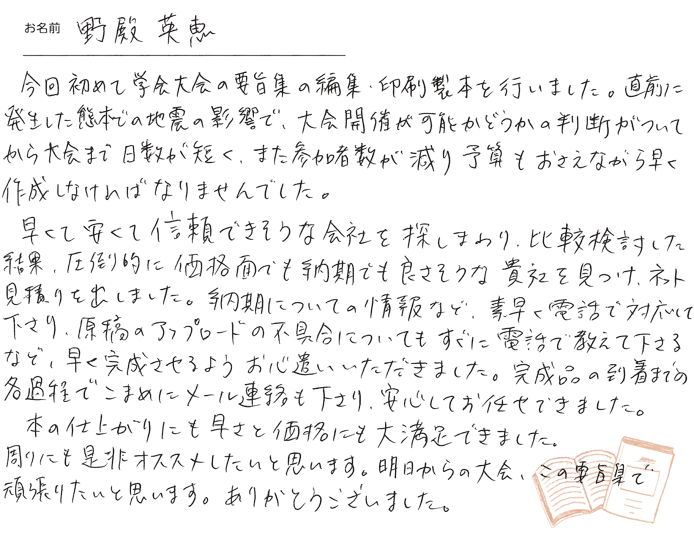 お名前 野殿 英恵
今回初めて学会大会の要旨集の編集・印刷製本を行いました。直前に
発生した熊本での地震の影響で、大会開催が可能かどうかの判断がついて
から大会まで日数が短く、また参加者数が減り予算もおさえながら早く
作成しなければなりませんでした。
早くて安くて信頼できそうな会社を探しまわり、比較検討した
結果、圧倒的に価格面でも納期でも良さそうな貴社を見つけ、ネット
見積りを出しました。納期についての情報など、素早く電話で対応して
下さり、原稿のアップロードの不具合についてもすぐに電話で教えて下さる
など、早く完成させるようお心遣いいただきました。完成品の到着までの
各過程でこまめにメール連絡も下さり、安心してお任せできました。
本の仕上がりにも早さと価格にも大満足できました。
周りにも是非オススメしたいと思います。明日からの大会、この要旨集で
頑張りたいと思います。ありがとうございました。